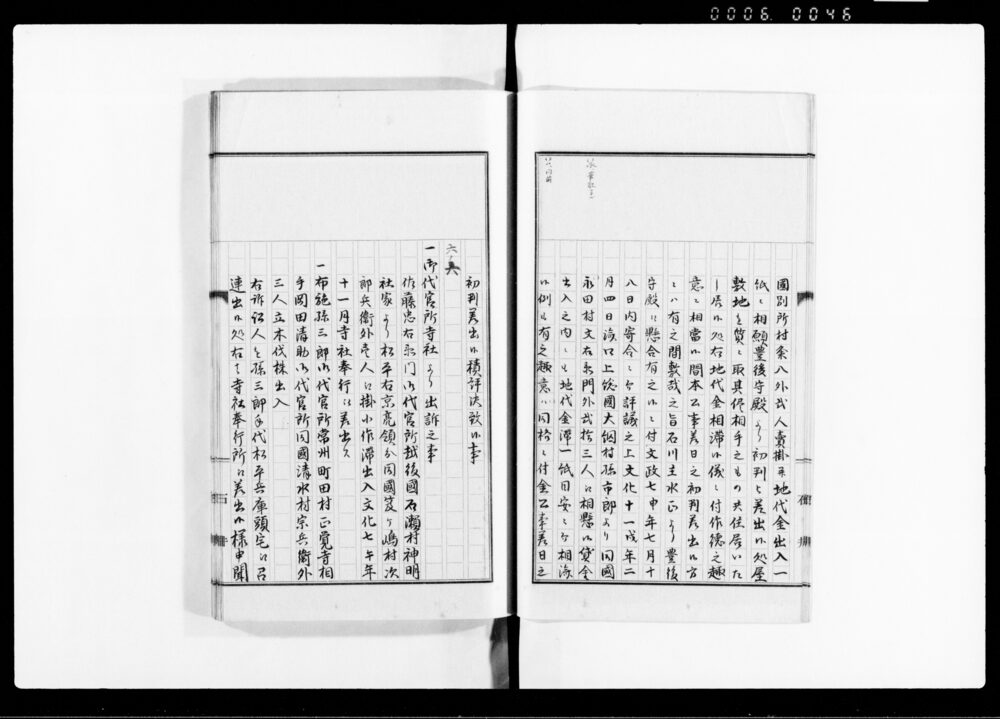 0006. 0046
國別所村金八外弐人賣掛并地代金出入一
紙ニ相願豊後守殿ゟ初判ニ差出候処屋
敷地を質ニ取其侭相手之もの共住居いた
し居候処右地代金相滞候儀ニ付作徳之趣
意ニ相當候間本公事差日之初判差出候方
ニハ有之間敷哉之旨石川主水正ゟ豊後
守殿江懸合有之候ニ付文政七申年七月十
八日内寄合ニ而評議之上文化十一戌年二
月四日海口上総國大網村孫市郎ゟ同國
永田村文右衛門外弐拾三人江相懸候貸金
出入之内ニも地代金滞一紙目安ニ而相済
候例も有之趣意ハ同格ニ付金公事差日之
初判差出候積評決致候事
六十六
一御代官所寺社ゟ出訴之事
佐藤忠右衛門御代官所越後國石瀬村神明
社家ゟ松平右京亮領分同國笈ヶ嶋村次
郎兵衛外壱人江掛小作滞出入文化七午年
十一月寺社奉行江差出ス
一布施孫三郎御代官所常州町田村正覚寺相
手岡田清助御代官所同國清水村宗兵衛外
三人立木伐株出入
右訴訟人を孫三郎手代松平兵庫頭宅江召
連出候処右之寺社奉行所江差出候様申聞